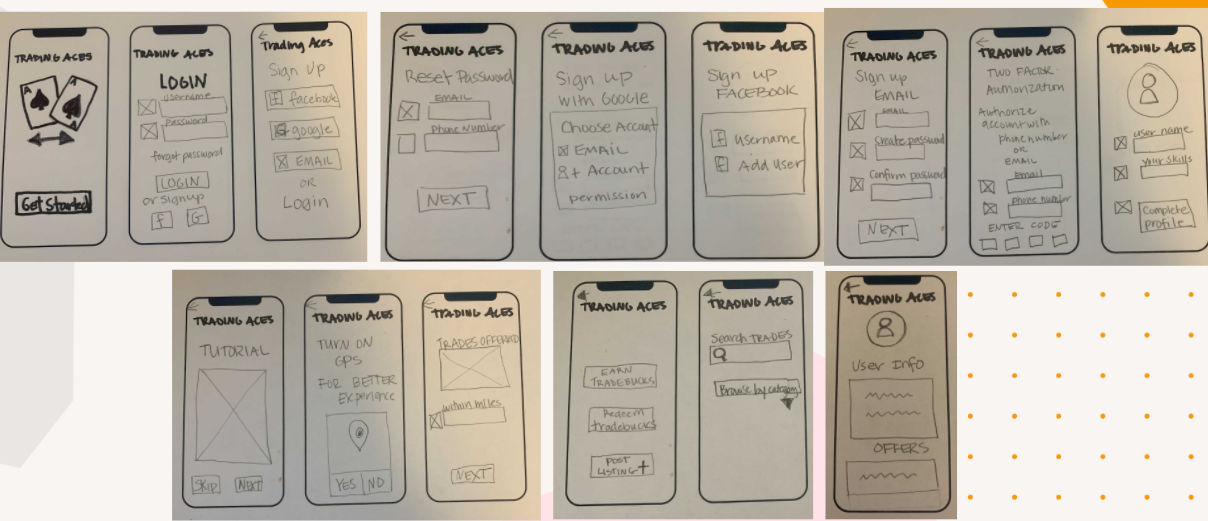 TRADING ACES
A
A
Get Started
TRADING ACES
LOGIN
username
password
forgot password
LOGIN
or signup
f G
Trading Aces
Sign Up
f facebook
G google
EMAIL
OR
Login
TRADING ACES
Reset Password
EMAIL
Phone Number
NEXT
TRADING ACES
Sign up
with GOOGLE
Choose Account
EMAIL
+ Account
permission
TRADING ACES
Sign up
FACEBOOK
f username
f Add user
TRADING ACES
Sign up
EMAIL
EMAIL
Create password
Confirm password
NEXT
TRADING ACES
TWO FACTOR
Authorization
Authorize
account with
phone number
OR
EMAIL
email
phone number
ENTER CODE
TRADING ACES
user name
your skills
Complete
profile
TRADING ACES
TUTORIAL
Skip Next
TRADING ACES
TURN ON
GPS
FOR BETTER
Experience
YES NO
TRADING ACES
TRADES OFFERED
within miles
NEXT
TRADING ACES
EARN
TRADEBUCKS
Redeem
tradebucks
POST
LISTING +
TRADING ACES
Search TRADES
Browse by category
TRADING ACES
User Info
OFFERS